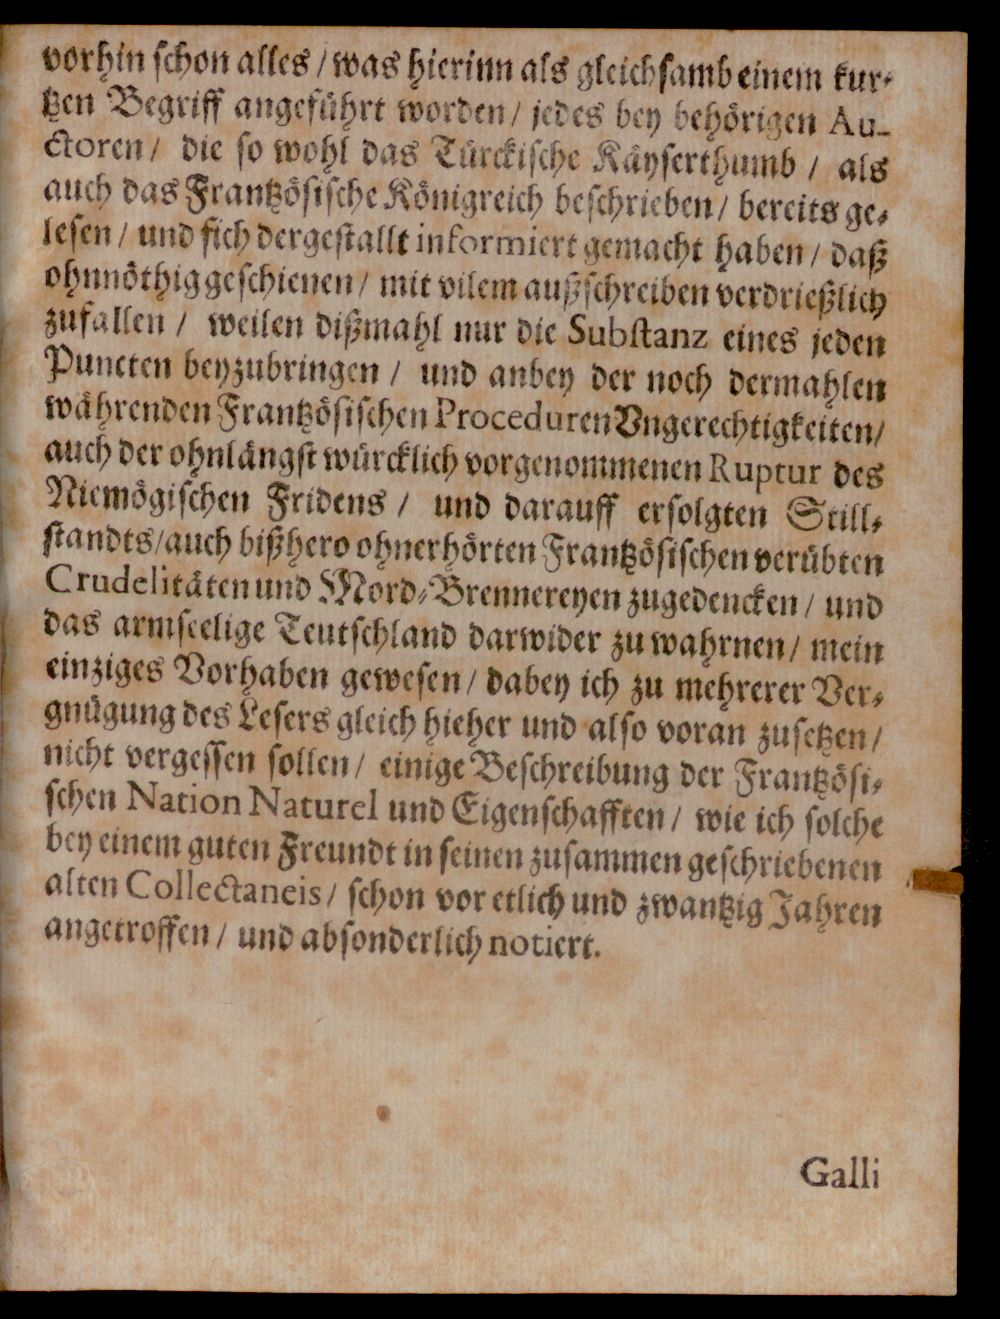 vorhin schon alles / was hierinn als gleichsamb einem kur-
tzen Begriff angeführt worden / jedes bey behörigen Au-
ctoren / die so wohl das Türckische Käyserthumb / als
auch das Frantzösische Königreich beschrieben / bereits ge-
lesen / und sich dergestallt informiert gemacht haben / daß
ohnnöthig geschienen / mit vilem außschreiben verdrießlich
zufallen / weilen dißmahl nur die Substanz eines jeden
Puncten beyzubringen / und anbey der noch dermahlen
währenden Frantzösischen Proceduren Vngerechtigkeiten /
auch der ohnlängst würcklich vorgenommenen Ruptur des
Niemögischen Fridens / und darauff erfolgten Still-
standts / auch bißhero ohnerhörten Frantzösischen verübten
Crudelitäten und Mord-Brennereyen zugedencken / und
das armseelige Teutschland darwider zu wahrnen / mein
einziges Vorhaben gewesen / dabey ich zu mehrerer Ver-
gnügung des Lesers gleich hieher und also voran zusetzen /
nicht vergessen sollen / einige Beschreibung der Frantzösi-
schen Nation Naturel und Eigenschafften / wie ich solche
bey einem guten Freundt in seinen zusammen geschriebenen
alten Collectaneis / schon vor etlich und zwantzig Jahren
angetroffen / und absonderlich notiert.
Galli